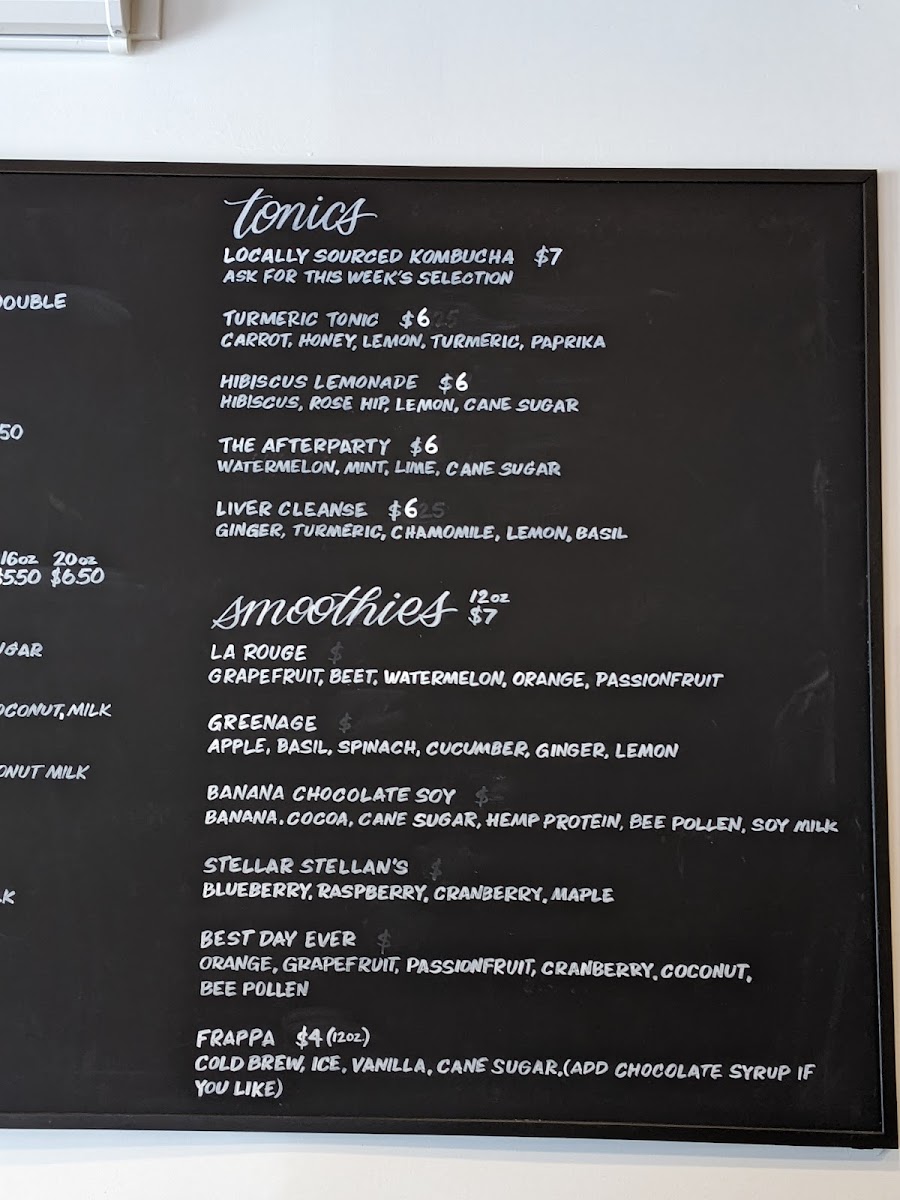 tonics
LOCALLY SOURCED KOMBUCHA $7
ASK FOR THIS WEEK'S SELECTION
DOUBLE
TURMERIC TONIC $6
CARROT, HONEY, LEMON, TURMERIC, PAPRIKA
HIBISCUS LEMONADE $6
HIBISCUS, ROSE HIP, LEMON, CANE SUGAR
50
THE AFTERPARTY $6
WATERMELON, MINT, LIME, CANE SUGAR
LIVER CLEANSE $6
GINGER, TURMERIC, CHAMOMILE, LEMON, BASIL
16oz 20oz
$5.50 $6.50
smoothies 12oz
$7
LA ROUGE
GRAPEFRUIT, BEET, WATERMELON, ORANGE, PASSIONFRUIT
UGAR
GREENAGE
APPLE, BASIL, SPINACH, CUCUMBER, GINGER, LEMON
OCONUT, MILK
ONUT MILK
BANANA CHOCOLATE SOY
BANANA, COCOA, CANE SUGAR, HEMP PROTEIN, BEE POLLEN, SOY MILK
STELLAR STELLAN'S
BLUEBERRY, RASPBERRY, CRANBERRY, MAPLE
LK
BEST DAY EVER
ORANGE, GRAPEFRUIT, PASSIONFRUIT, CRANBERRY, COCONUT,
BEE POLLEN
FRAPPA $4 (12oz)
COLD BREW, ICE, VANILLA, CANE SUGAR, (ADD CHOCOLATE SYRUP IF
YOU LIKE)